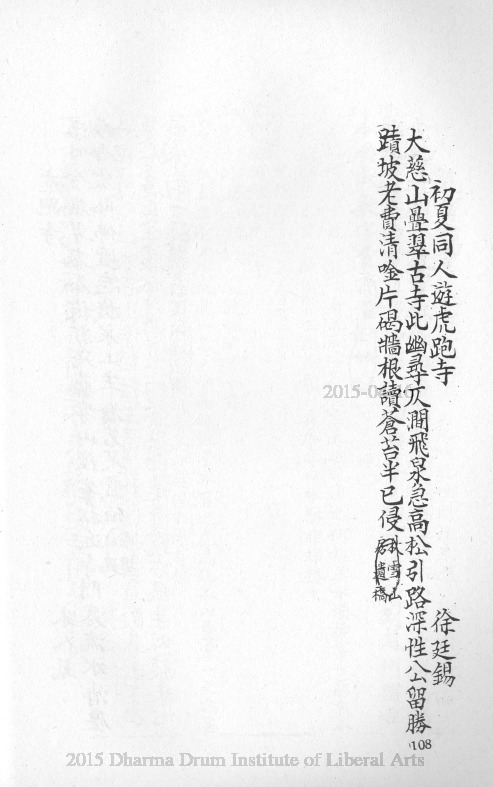 初夏同人遊虎跑寺
徐廷錫
大慈山疊翠古寺此幽尋仄澗飛泉急高松引路深性公留勝
蹟坡老費清唫片碣牆根讀蒼苔半已侵
雪山
房遺稿
108
2015 Dharma Drum Institute of Liberal Arts